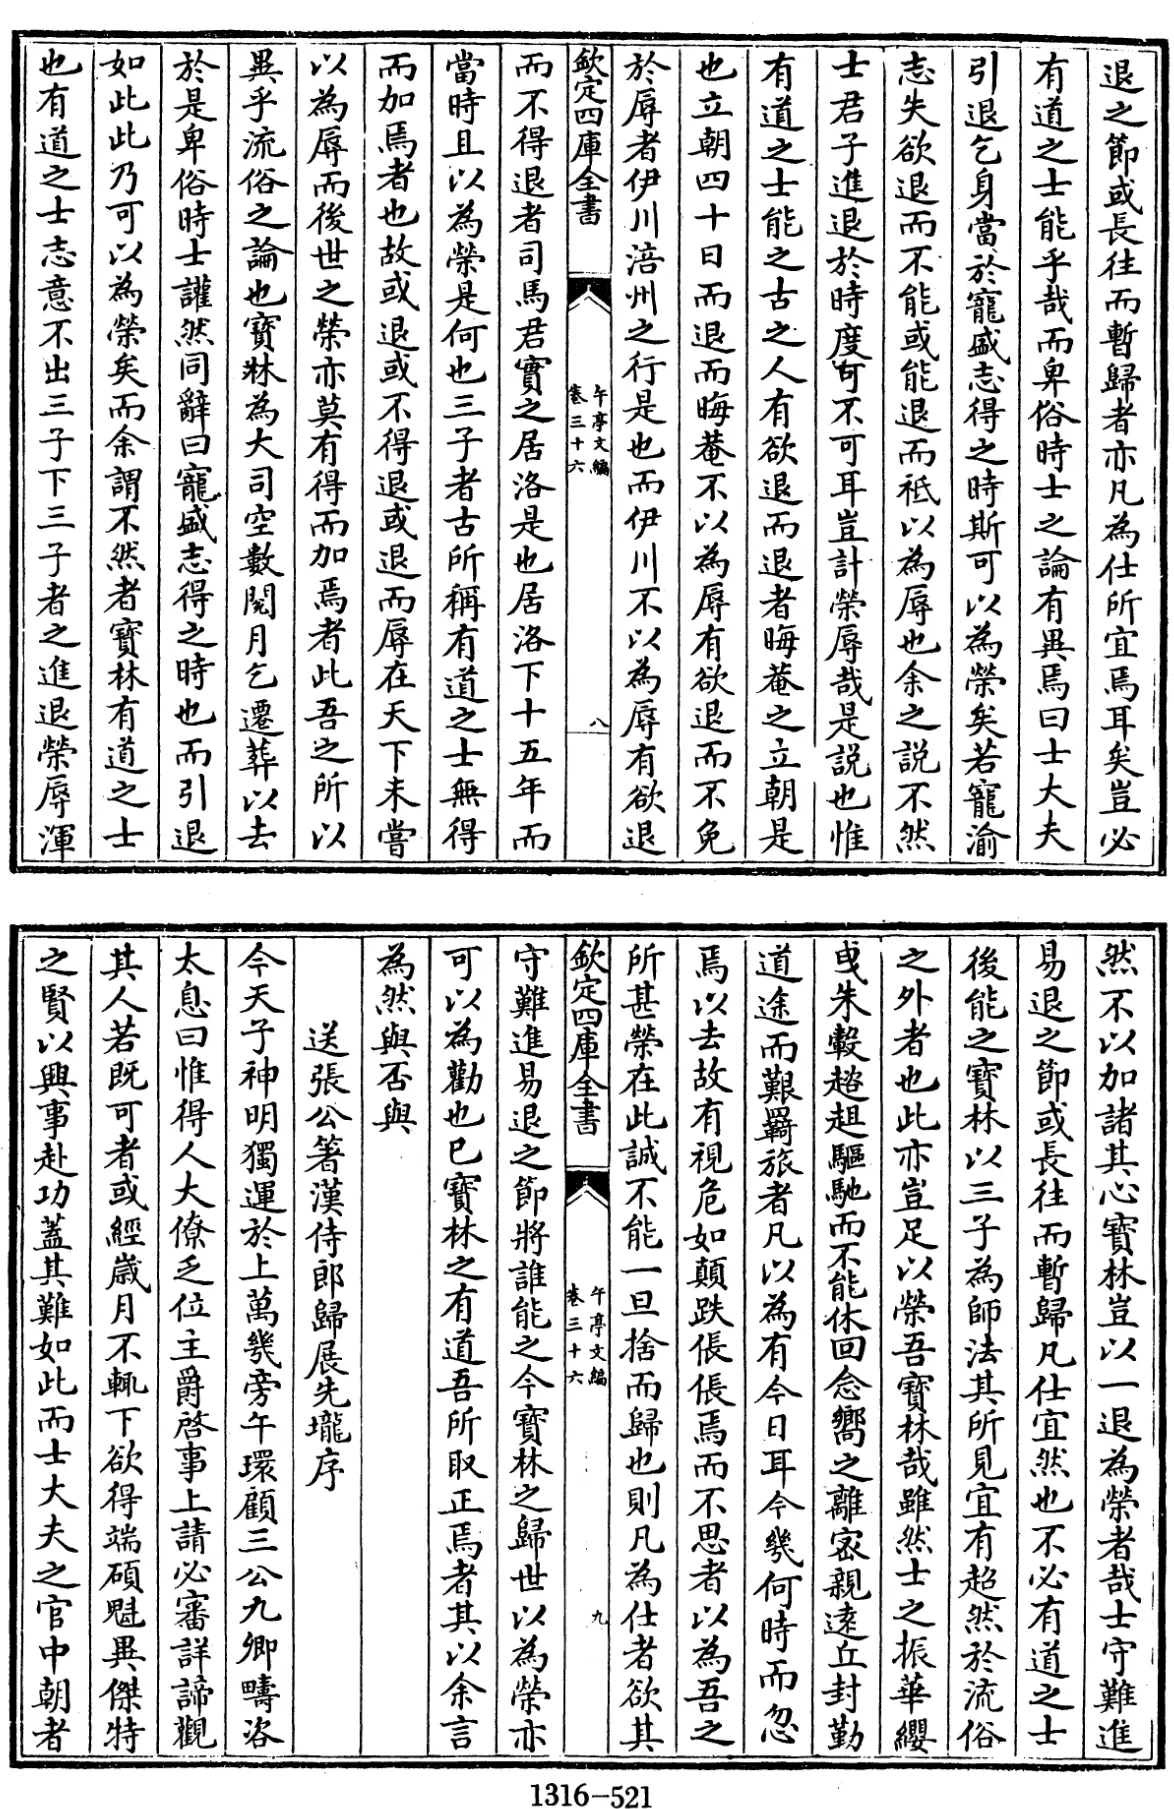 退之節或長往而暫歸者亦凡為仕所宜焉耳矣豈必
有道之士能乎哉而卑俗時士之論有異焉曰士大夫
引退乞身當於寵盛志得之時斯可以為榮矣若寵渝
志失欲退而不能或能退而祗以為辱也余之説不然
士君子進退於時度可不可耳豈計榮辱哉是説也惟
有道之士能之古之人有欲退而退者晦菴之立朝是
也立朝四十日而退而晦菴不以為辱有欲退而不免
於辱者伊川涪州之行是也而伊川不以為辱有欲退
欽定四庫全書
午亭文編
卷三十六
八
而不得退者司馬君實之居洛是也居洛下十五年而
當時且以為榮是何也三子者古所稱有道之士無得
而加焉者也故或退或不得退或退而辱在天下未嘗
以為辱而後世之榮亦莫有得而加焉者此吾之所以
異乎流俗之論也寶林為大司空數閱月乞遷葬以去
於是卑俗時士讙然同辭曰寵盛志得之時也而引退
如此此乃可以為榮矣而余謂不然者寶林有道之士
也有道之士志意不出三子下三子者之進退榮辱渾
然不以加諸其心寶林豈以一退為榮者哉士守難進
易退之節或長往而暫歸凡仕宜然也不必有道之士
後能之寶林以三子為師法其所見宜有超然於流俗
之外者也此亦豈足以榮吾寶林哉雖然士之振華纓
曵朱轂趦趄驅馳而不能休回念嚮之離宻親逺丘封勤
道途而艱羇旅者凡以為有今日耳今幾何時而忽
焉以去故有視危如顛跌倀倀焉而不思者以為吾之
所甚榮在此誠不能一旦捨而歸也則凡為仕者欲其
欽定四庫全書
午亭文編
卷三十六
九
守難進易退之節將誰能之今寶林之歸世以為榮亦
可以為勸也已寶林之有道吾所取正焉者其以余言
為然與否與
送張公箸漢侍郎歸展先壠序
今天子神明獨運於上萬幾旁午環顧三公九卿疇咨
太息曰惟得人大僚乏位主爵啓事上請必審詳諦觀
其人若既可者或經歲月不輒下欲得端碩魁異傑特
之賢以興事赴功蓋其難如此而士大夫之官中朝者
1316-521